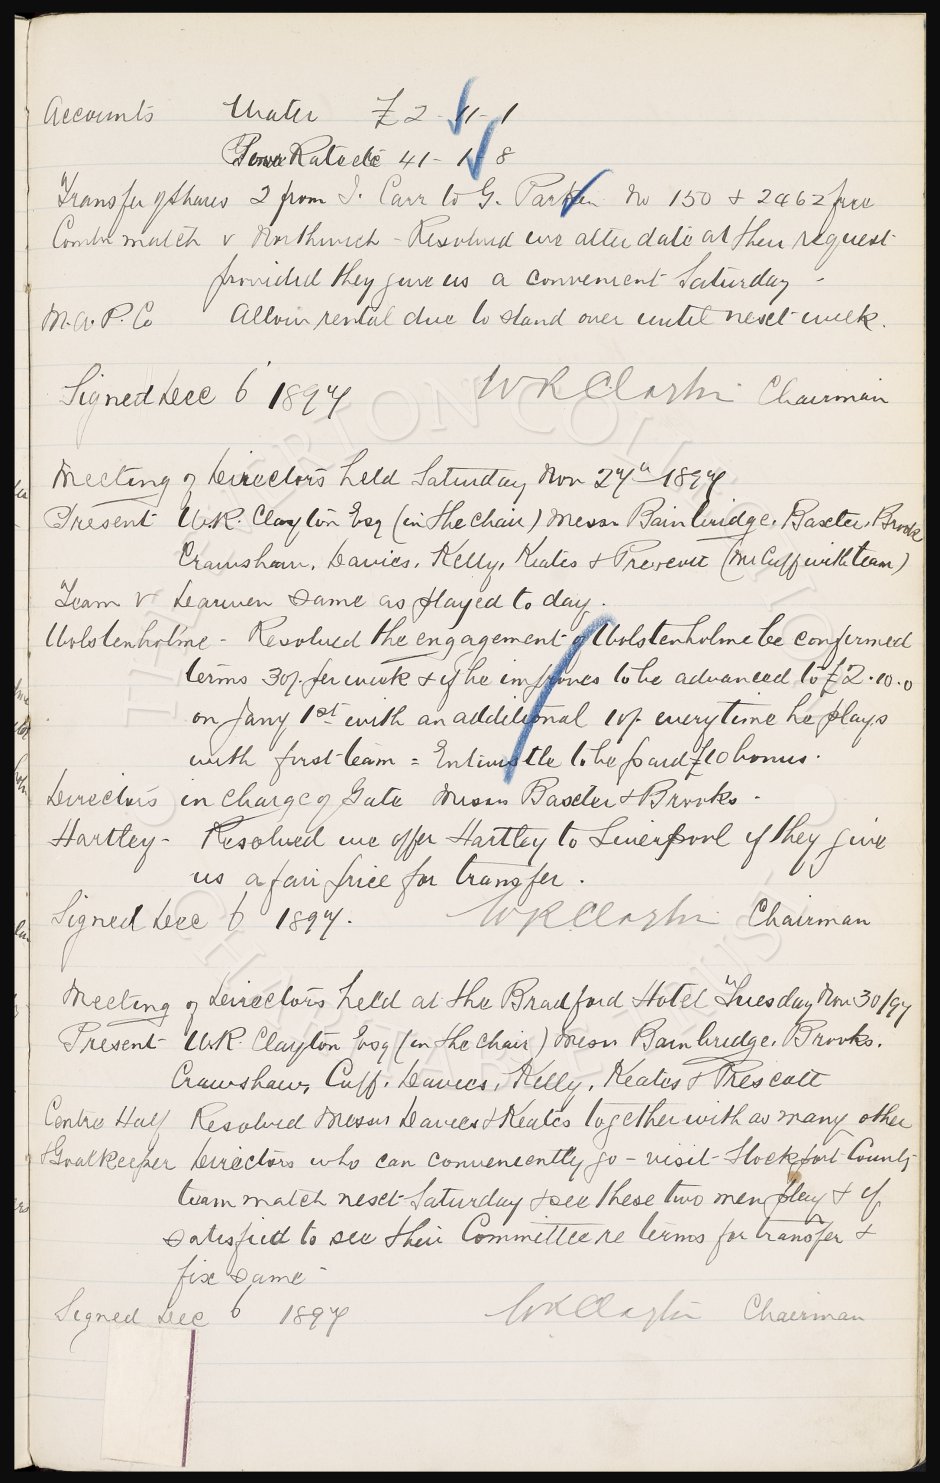 Accounts Water £2-11-1
Poor Rate &c 41-1-8
Transfer of shares 2 from J. Carr to G. Parker No 150 & 2462 free
Combn match v Northwich - Resolved we alter date at their request
provided they give us a convenient Saturday -
M.A.P. Co Allow rental due to stand over until next week.
Signed Dec 6 1897 WR Clayton Chairman
Meeting of Directors held Saturday Nov 27th 1897
Present W.R. Clayton Esq (in the chair) Messrs Bainbridge, Baxter, Brooks
Crawshaw, Davies, Kelly, Keates & Prescott (Mr Cuff with team)
Team v Darwen same as played to day.
Wolstenholme - Resolved the engagement of Wolstenholme be confirmed
terms 30/- per week & if he improves to be advanced to £2.10.0
on Jany 1st with an additional 10/- everytime he plays
with first team = Entwistle to be paid £10 bonus.
Directors in charge of Gate Messrs Baxter & Brooks -
Hartley - Resolved we offer Hartley to Liverpool if they give
us a fair price for transfer.
Signed Dec 6 1897. WR Clayton Chairman
Meeting of Directors held at the Bradford Hotel Tuesday Nov 30/97
Present W.R. Clayton Esq (in the chair) Messrs Bainbridge, Brooks,
Crawshaw, Cuff, Davies, Kelly, Keates & Prescott
Centre Half Resolved Messrs Davies & Keates together with as many other
& Goalkeeper Directors who can conveniently go - visit Stockport County
team match next Saturday & see these two men play & if
satisfied to see their Committee re terms for transfer &
fix same -
Signed Dec 6 1897 WR Clayton Chairman
THE EVERTON COLLECTION
CHARITABLE TRUST